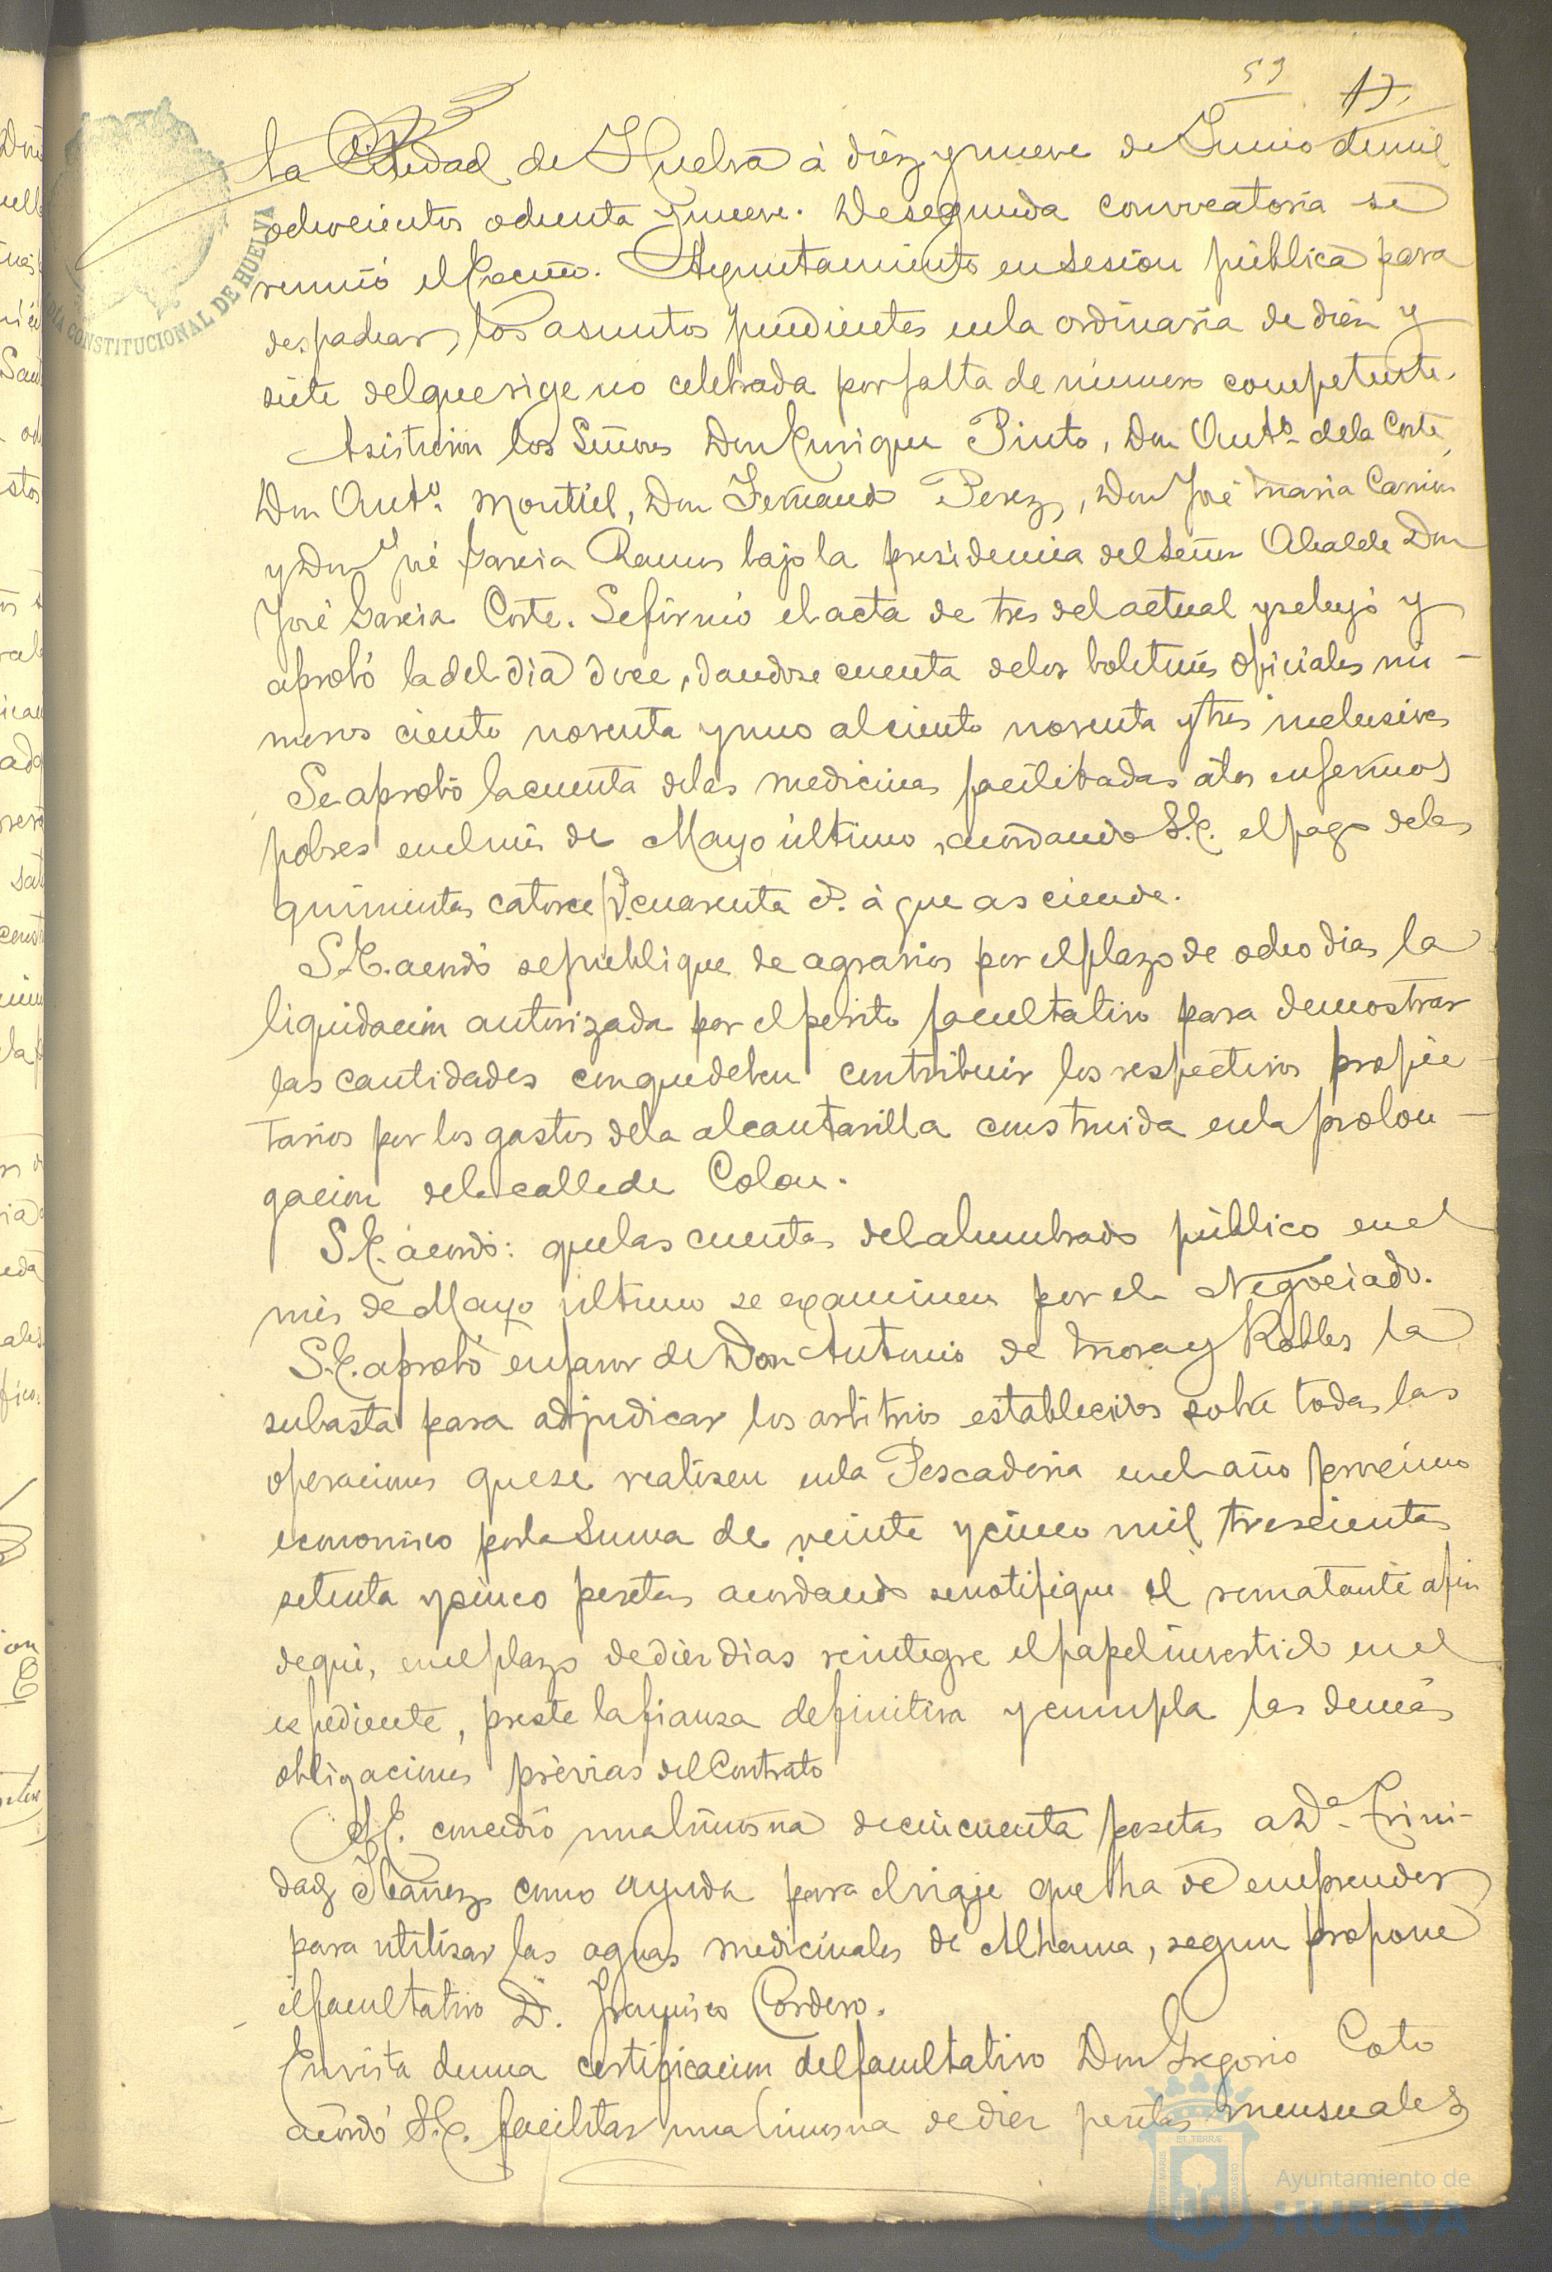 59 17.
la Ciudad de Huelva à diez y nueve de Junio de mil
ochocientos ochenta y nueve. De segunda convocatoria se
reunió el Excmo. Ayuntamiento en sesion pública para
despachar los asuntos pendientes en la ordinaria de diez y
siete del que rige no celebrada por falta de número competente.
Asistieron los Señores Don Enrique Pinto, Don Antº. de la Corte,
Don Antº. Montiel, Don Fernando Perez, Don José Maria Carrion
y Don José Garcia Ramos bajo la presidencia del Señor Alcalde Don
José Garcia Corte. Se firmó el acta de tres del actual y se leyó y
aprobó la del dia doce, dandose cuenta de los boletines oficiales nú-
meros ciento noventa y uno al ciento noventa y tres inclusives
Se aprobó la cuenta de las medicinas facilitadas a los enfermos
pobres en el mes de Mayo último, acordando S.E. el pago de las
quinientas catorce p. cuarenta c. à que asciende.
S.E. acordó se publique de agravios por el plazo de ocho dias la
liquidacion autorizada por el perito facultativo para demostrar
las cantidades con que deben contribuir los respectivos propie-
tarios por los gastos de la alcantarilla construida en la prolon-
gacion de la calle de Colon.
S.E. acordó: que las cuentas del alumbrado público en el
mes de Mayo ultimo se examinen por el Negociado.
S.E. aprobó en favor de Don Antonio de Mora y Robles la
subasta para adjudicar los arbitrios establecidos sobre todas las
operaciones que se realisen en la Pescaderia en el año proximo
economico por la suma de veinte y cinco mil trescientas
setenta y cinco pesetas acordando se notifique al rematante a fin
de que, en el plazo de diez dias reintegre el papel invertido en el
espediente, preste la fianza definitiva y cumpla las demás
obligaciones prévias del Contrato
S.E. concedió una limosna de cincuenta pesetas a Dª. Trini-
dad Ibañez como ayuda para el viaje que ha de emprender
para utilisar las aguas medicinales de Alhama, segun propone
el facultativo D. Francisco Cordero.
En vista de una certificacion del facultativo Don Gregorio Coto
acordó S.E. facilitar una limosna de diez pesetas mensuales
CONSTITUCIONAL DE HUELVA
Ayuntamiento de
HUELVA